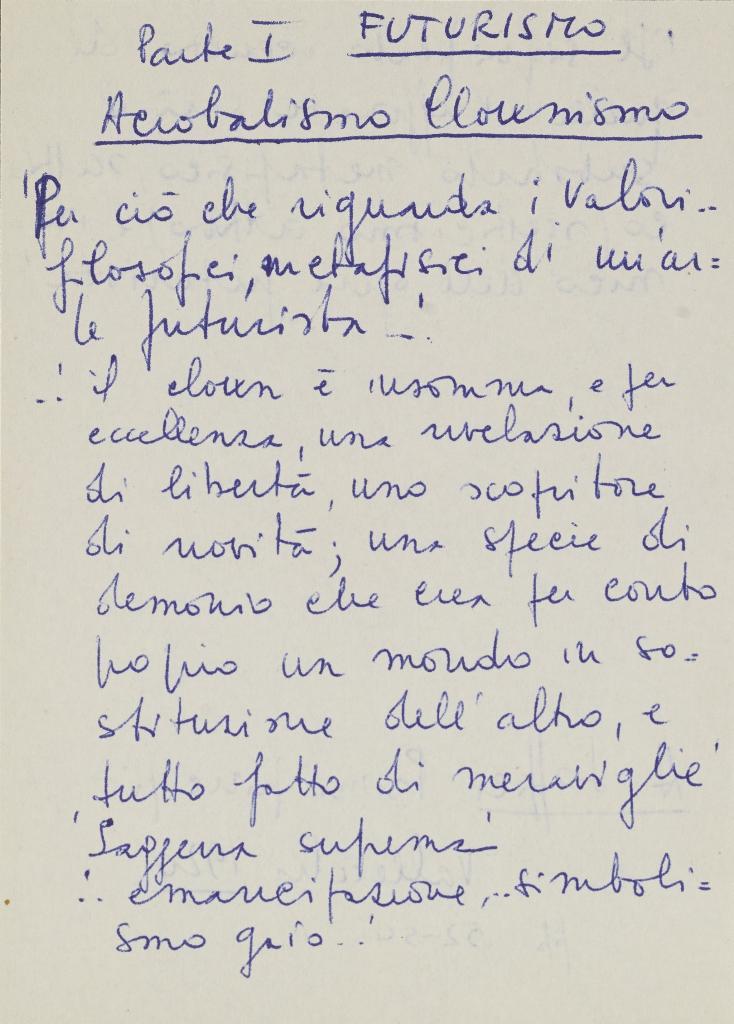 Parte I FUTURISMO
Acrobatismo Clownismo
'Per ciò che riguarda i valori..
filosofici, metafisici di un'ar=
te futurista –'.
..' il clown è insomma, e per
eccellenza, una rivelazione
di libertà, uno scopritore
di novità; una specie di
demonio che crea per conto
proprio un mondo in so=
stituzione dell'altro, e
tutto fatto di meraviglie'
'Saggezza suprema'
'.. emancipazione,.. simboli=
smo gaio..'